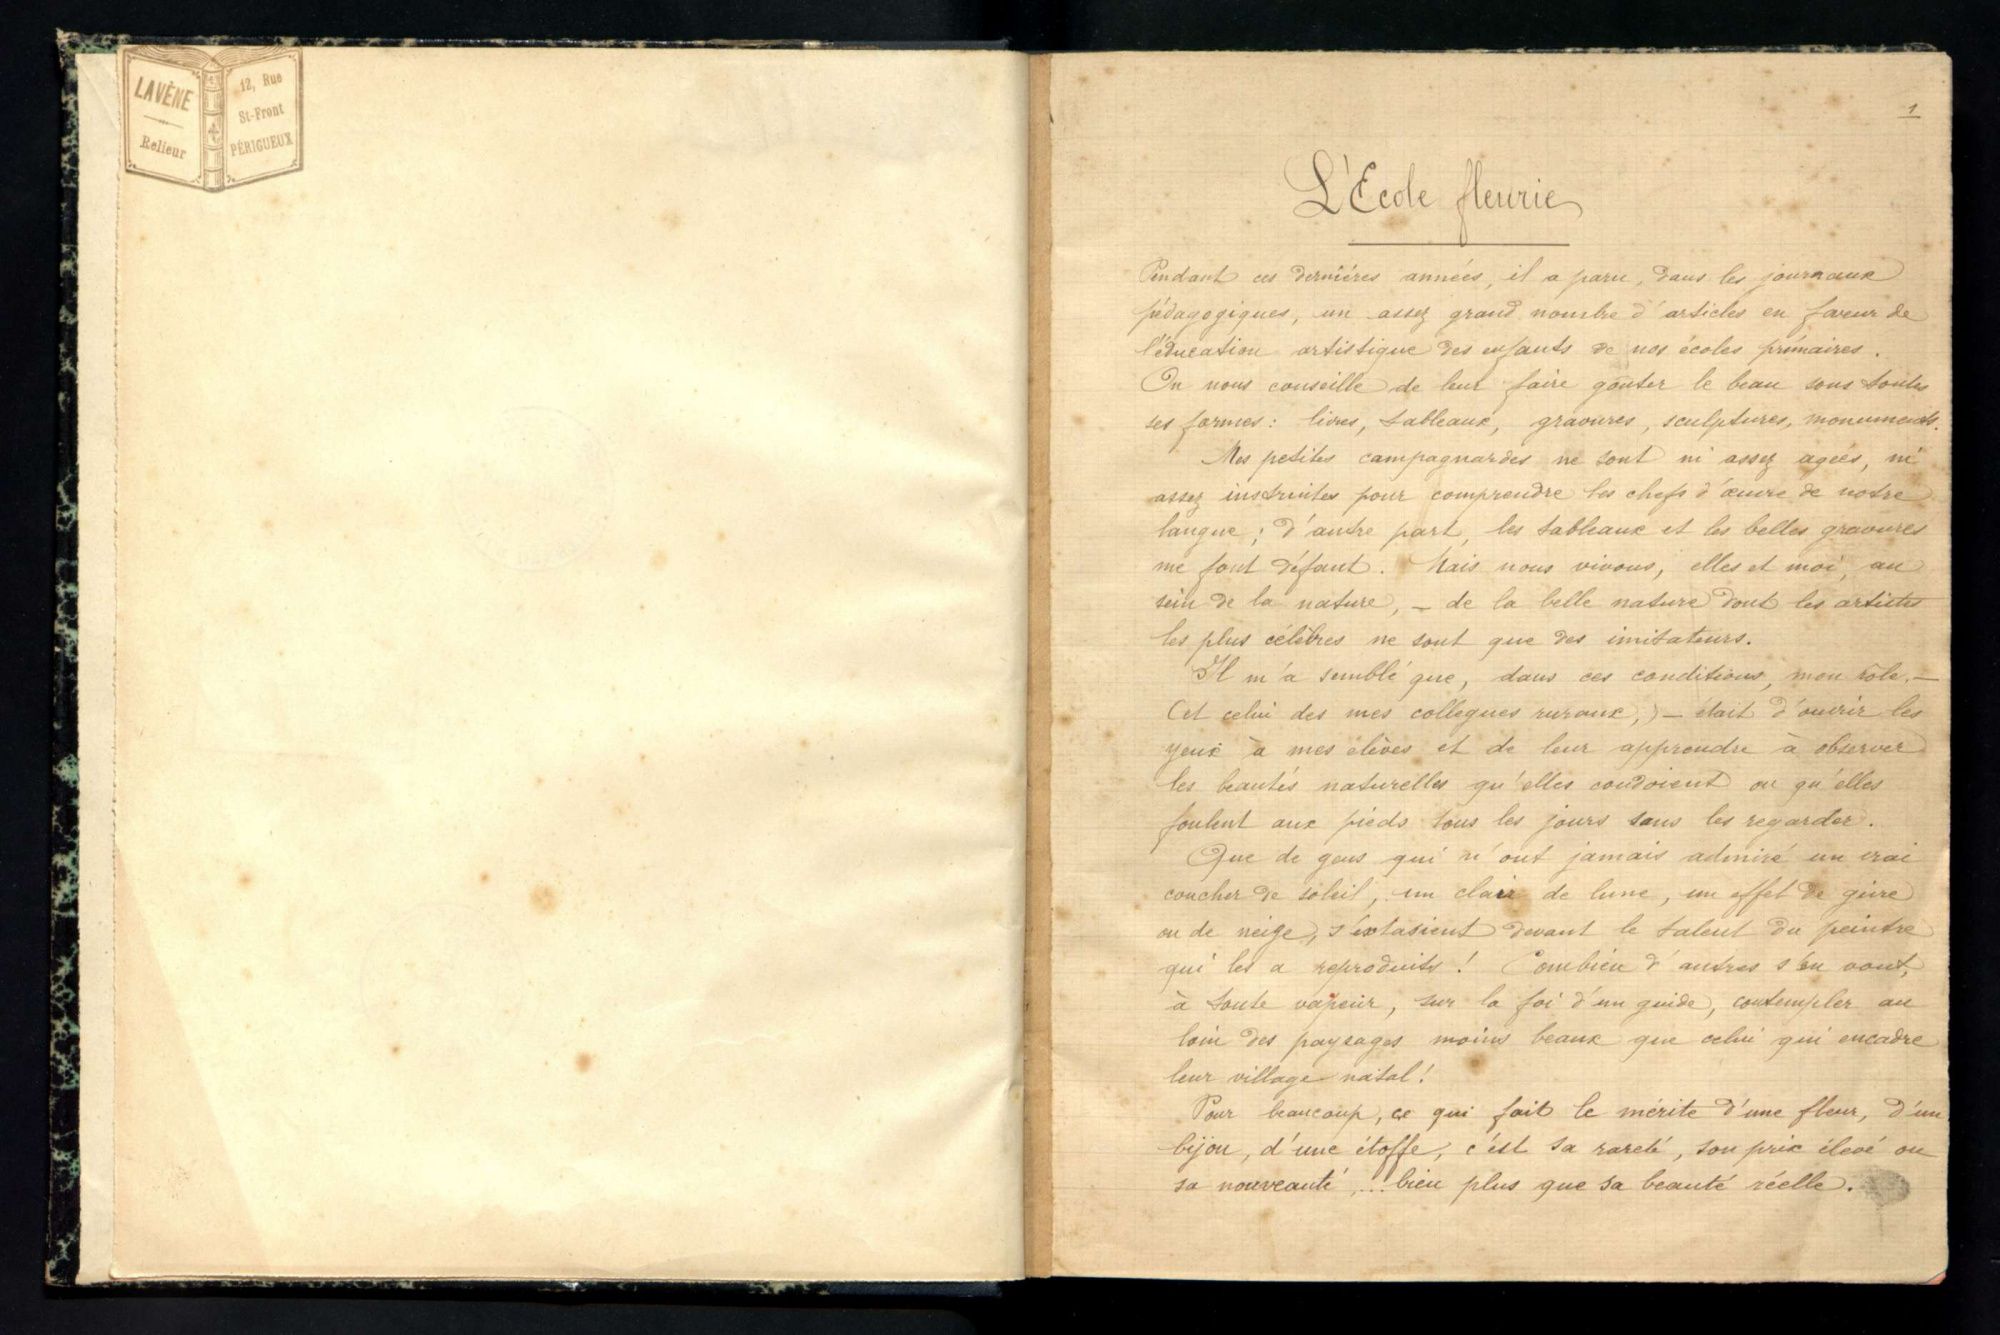 LAVÈNE
Relieur
12, Rue
St-Front
PÉRIGUEUX
1
L'Ecole fleurie
Pendant ces dernières années, il a paru, dans les journaux
pédagogiques, un assez grand nombre d'articles en faveur de
l'éducation artistique des enfants de nos écoles primaires.
On nous conseille de leur faire goûter le beau sous toutes
ses formes : livres, tableaux, gravures, sculptures, monuments.
Mes petites campagnardes ne sont ni assez agées, ni
assez instruites pour comprendre les chefs d'œuvre de notre
langue ; d'autre part, les tableaux et les belles gravures
me font défaut. Mais nous vivons, elles et moi, au
sein de la nature, — de la belle nature dont les artistes
les plus célèbres ne sont que des imitateurs.
Il m'a semblé que, dans ces conditions, mon rôle, —
(et celui des mes collègues ruraux,) — était d'ouvrir les
yeux à mes élèves et de leur apprendre à observer
les beautés naturelles qu'elles coudoient ou qu'elles
foulent aux pieds tous les jours sans les regarder.
Que de gens qui n'ont jamais admiré un vrai
coucher de soleil, un clair de lune, un effet de givre
ou de neige, s'extasient devant le talent du peintre
qui les a reproduits ! Combien d'autres s'en vont,
à toute vapeur, sur la foi d'un guide, contempler au
loin des paysages moins beaux que celui qui encadre
leur village natal !
Pour beaucoup, ce qui fait le mérite d'une fleur, d'un
bijou, d'une étoffe, c'est sa rareté, son prix élevé ou
sa nouveauté, ... bien plus que sa beauté réelle.